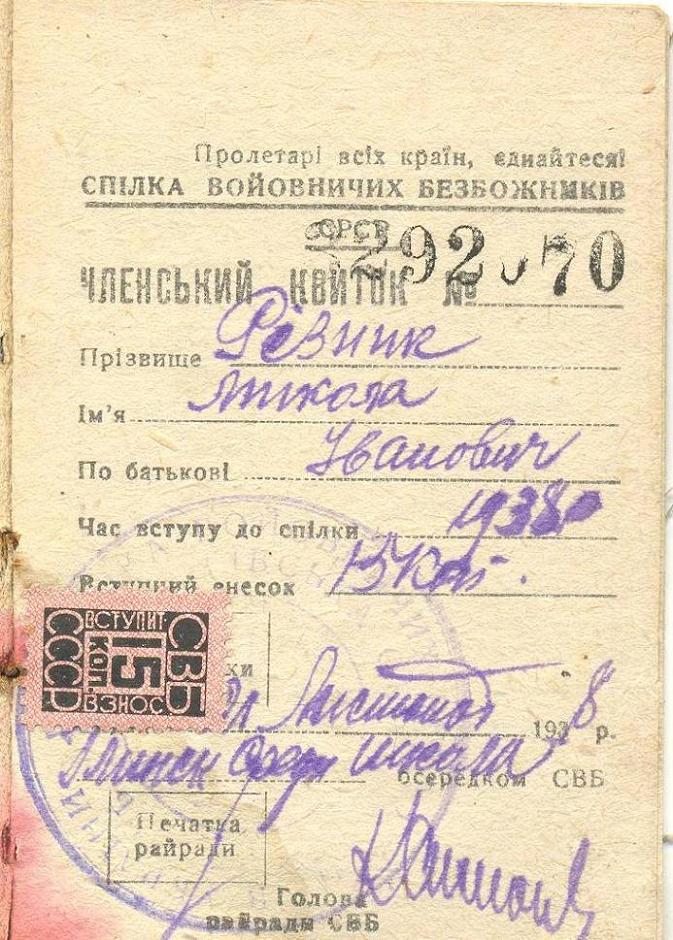 Пролетарі всіх країн, єднайтеся!
СПІЛКА ВОЙОВНИЧИХ БЕЗБОЖНИКІВ
СРСР
ЧЛЕНСЬКИЙ КВИТОК № 292 70
Прізвище Рєзник
Ім'я Микола
По батькові Іванович
Час вступу до спілки 1938
Вступний внесок 15 коп.
СВБ
ВСТУПИТ.
15
КОП.
ВЗНОС.
СССР
ки
Листопад 1938 р.
школа осередком СВБ
Печатка
райради
Голова
райради СВБ